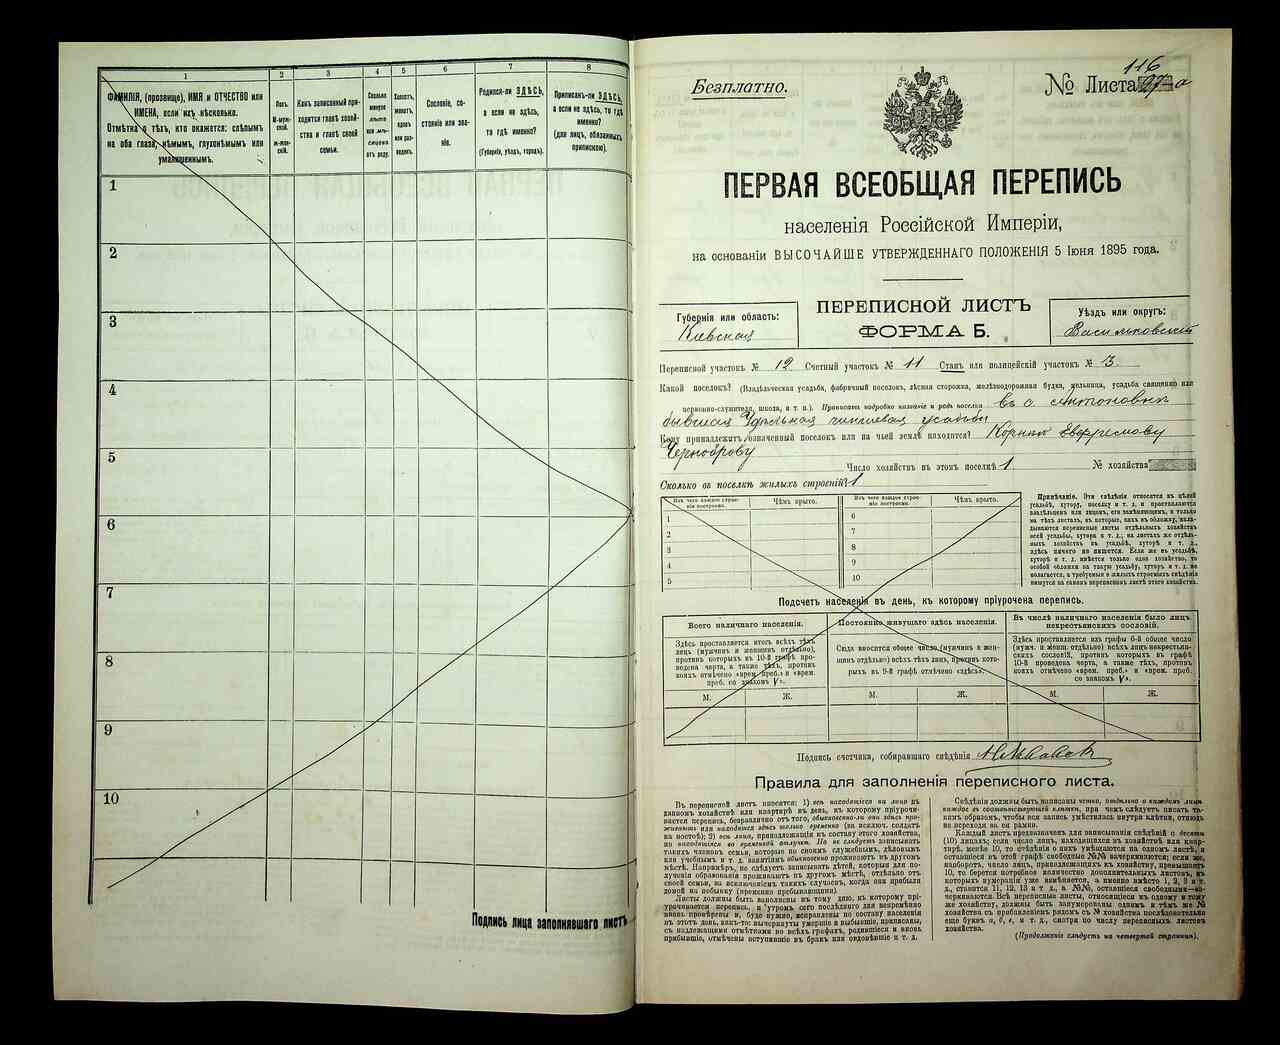 1
2
3
4
5
6
7
8
ФАМИЛІЯ, (прозвище), ИМЯ и ОТЧЕСТВО или
ИМЕНА, если ихъ нѣсколько.
Отмѣтка о тѣхъ, кто окажется: слѣпымъ
на оба глаза, нѣмымъ, глухонѣмымъ или
умалишеннымъ.
Полъ.
М-муж-
ской.
ж-жен-
скій.
Какъ записанный при-
ходится главѣ хозяй-
ства и главѣ своей
семьи.
Сколько
минуло
лѣтъ
или мѣ-
сяцевъ
отъ роду.
Холостъ,
женатъ,
вдовъ
или раз-
веденъ.
Сословіе, со-
стояніе или зва-
ніе.
Родился-ли ЗДѢСЬ,
а если не здѣсь,
то гдѣ именно?
(Губернія, уѣздъ, городъ).
Приписанъ-ли ЗДѢСЬ,
а если не здѣсь, то гдѣ
именно?
(для лицъ, обязанныхъ
припискою).
1
2
3
4
5
6
7
8
9
10
Подпись лица заполнявшаго листъ
Безплатно.
116
№ Листа а
ПЕРВАЯ ВСЕОБЩАЯ ПЕРЕПИСЬ
населенія Россійской Имперіи,
на основаніи ВЫСОЧАЙШЕ УТВЕРЖДЕННАГО ПОЛОЖЕНІЯ 5 Іюня 1895 года.
Губернія или область:
Кіевская
ПЕРЕПИСНОЙ ЛИСТЪ
ФОРМА Б.
Уѣздъ или округъ:
Васильковскій
Переписной участокъ № 12 Счетный участокъ № 11 Станъ или полицейскій участокъ № 3.
Какой поселокъ? (Владѣльческая усадьба, фабричный поселокъ, лѣсная сторожка, желѣзнодорожная будка, мельница, усадьба священно или
церковно-служителя, школа, и т. п.). Прописать подробно названіе и родъ поселка въ с. Антоновкѣ
бывшая усадьба
Кому принадлежитъ означенный поселокъ или на чьей землѣ находится? Евфремову
Черноброву
Число хозяйствъ въ этомъ поселкѣ 1. № хозяйства
Сколько въ поселкѣ жилыхъ строеній? 1
Изъ чего каждое строе-
ніе построено.
Чѣмъ крыто.
Изъ чего каждое строе-
ніе построено.
Чѣмъ крыто.
1
2
3
4
5
6
7
8
9
10
Примѣчаніе. Эти свѣдѣнія относятся къ цѣлой
усадьбѣ, хутору, поселку и т. д. и проставляются
владѣльцемъ или лицомъ, его замѣняющимъ, и только
на тѣхъ листахъ, въ которые, какъ въ обложку, вкла-
дываются переписные листы отдѣльныхъ хозяйствъ
всей усадьбы, хутора и т. д.; на листахъ же отдѣль-
ныхъ хозяйствъ въ усадьбѣ, хуторѣ и т. д.,
здѣсь ничего не пишется. Если же въ усадьбѣ,
хуторѣ и т. д. имѣется только одно хозяйство, то
особой обложки на такую усадьбу, хуторъ и т. д. не
полагается, а требуемыя о жилыхъ строеніяхъ свѣдѣнія
пишутся на самомъ переписномъ листѣ этого хозяйства.
Подсчетъ населенія въ день, къ которому пріурочена перепись.
Всего наличнаго населенія.
Постоянно живущаго здѣсь населенія.
Въ числѣ наличнаго населенія было лицъ
некрестьянскихъ сословій.
Здѣсь проставляется итогъ всѣхъ тѣхъ
лицъ (мужчинъ и женщинъ отдѣльно),
противъ которыхъ въ 10-й графѣ про-
ведена черта, а также тѣхъ, противъ
коихъ отмѣчено «врем. преб.» и «врем.
преб. со знакомъ V».
Сюда вносится общее число (мужчинъ и жен-
щинъ отдѣльно) всѣхъ тѣхъ лицъ, противъ кото-
рыхъ въ 9-й графѣ отмѣчено «здѣсь».
Здѣсь проставляется изъ графы 6-й общее число
(мужч. и женщ. отдѣльно) всѣхъ лицъ некрестьян-
скихъ сословій, противъ которыхъ въ графѣ
10-й проведена черта, а также тѣхъ, противъ
коихъ отмѣчено «врем. преб.» и «врем. преб.
со знакомъ V».
М.
Ж.
М.
Ж.
М.
Ж.
Подпись счетчика, собиравшаго свѣдѣнія
Правила для заполненія переписного листа.
Въ переписной листъ вносятся: 1) всѣ находящіеся на лицо въ
данномъ хозяйствѣ или квартирѣ въ день, къ которому пріурочи-
вается перепись, безразлично отъ того, обыкновенно-ли они здѣсь про-
живаютъ или находятся здѣсь только временно (за исключ. солдатъ
на постоѣ); 2) всѣ лица, принадлежащія къ составу этого хозяйства,
но находящіяся во временной отлучкѣ. Но не слѣдуетъ записывать
такихъ членовъ семьи, которые по своимъ служебнымъ, дѣловымъ
или учебнымъ и т. д. занятіямъ обыкновенно проживаютъ въ другомъ
мѣстѣ. Напримѣръ, не слѣдуетъ записывать дѣтей, которыя для по-
лученія образованія проживаютъ въ другомъ мѣстѣ, отдѣльно отъ
своей семьи, за исключеніемъ такихъ случаевъ, когда они прибыли
домой на побывку (временно пребывающими).
Листы должны быть заполнены къ тому дню, къ которому прі-
урочивается перепись, и утромъ сего послѣдняго дня непремѣнно
вновь провѣрены и, буде нужно, исправлены по составу населенія
въ этотъ день, какъ-то: вычеркнуты умершіе и выбывшіе, приписаны,
съ надлежащими отмѣтками во всѣхъ графахъ, родившіеся и вновь
прибывшіе, отмѣчены вступившіе въ бракъ или овдовѣвшіе и т. д.
Свѣдѣнія должны быть написаны четко, отдѣльно о каждомъ лицѣ
каждое въ соотвѣтствующей клѣткѣ, при чемъ слѣдуетъ писать та-
кимъ образомъ, чтобы вся запись умѣстилась внутри клѣтки, отнюдь
не переходя за ея рамки.
Каждый листъ предназначенъ для записыванія свѣдѣній о десяти
(10) лицахъ; если число лицъ, находящихся въ хозяйствѣ или квар-
тирѣ, менѣе 10, то свѣдѣнія о нихъ умѣщаются на одномъ листѣ, и
оставшіеся въ этой графѣ свободные №№ зачеркиваются; если же,
наоборотъ, число лицъ, принадлежащихъ къ хозяйству, превышаетъ
10, то берется потребное количество дополнительныхъ листовъ, въ
которыхъ нумерація уже измѣняется, а именно вмѣсто 1, 2, 3 и т.
д., ставится 11, 12, 13 и т. д., а №№, оставшіеся свободными—за-
черкиваются. Всѣ переписные листы, относящіеся къ одному и тому
же хозяйству, должны быть занумерованы однимъ и тѣмъ же №
хозяйства съ прибавленіемъ рядомъ съ № хозяйства послѣдовательно
еще буквъ а, б, в, и т. д., смотря по числу переписныхъ листовъ
хозяйства.
(Продолженіе слѣдуетъ на четвертой страницѣ).